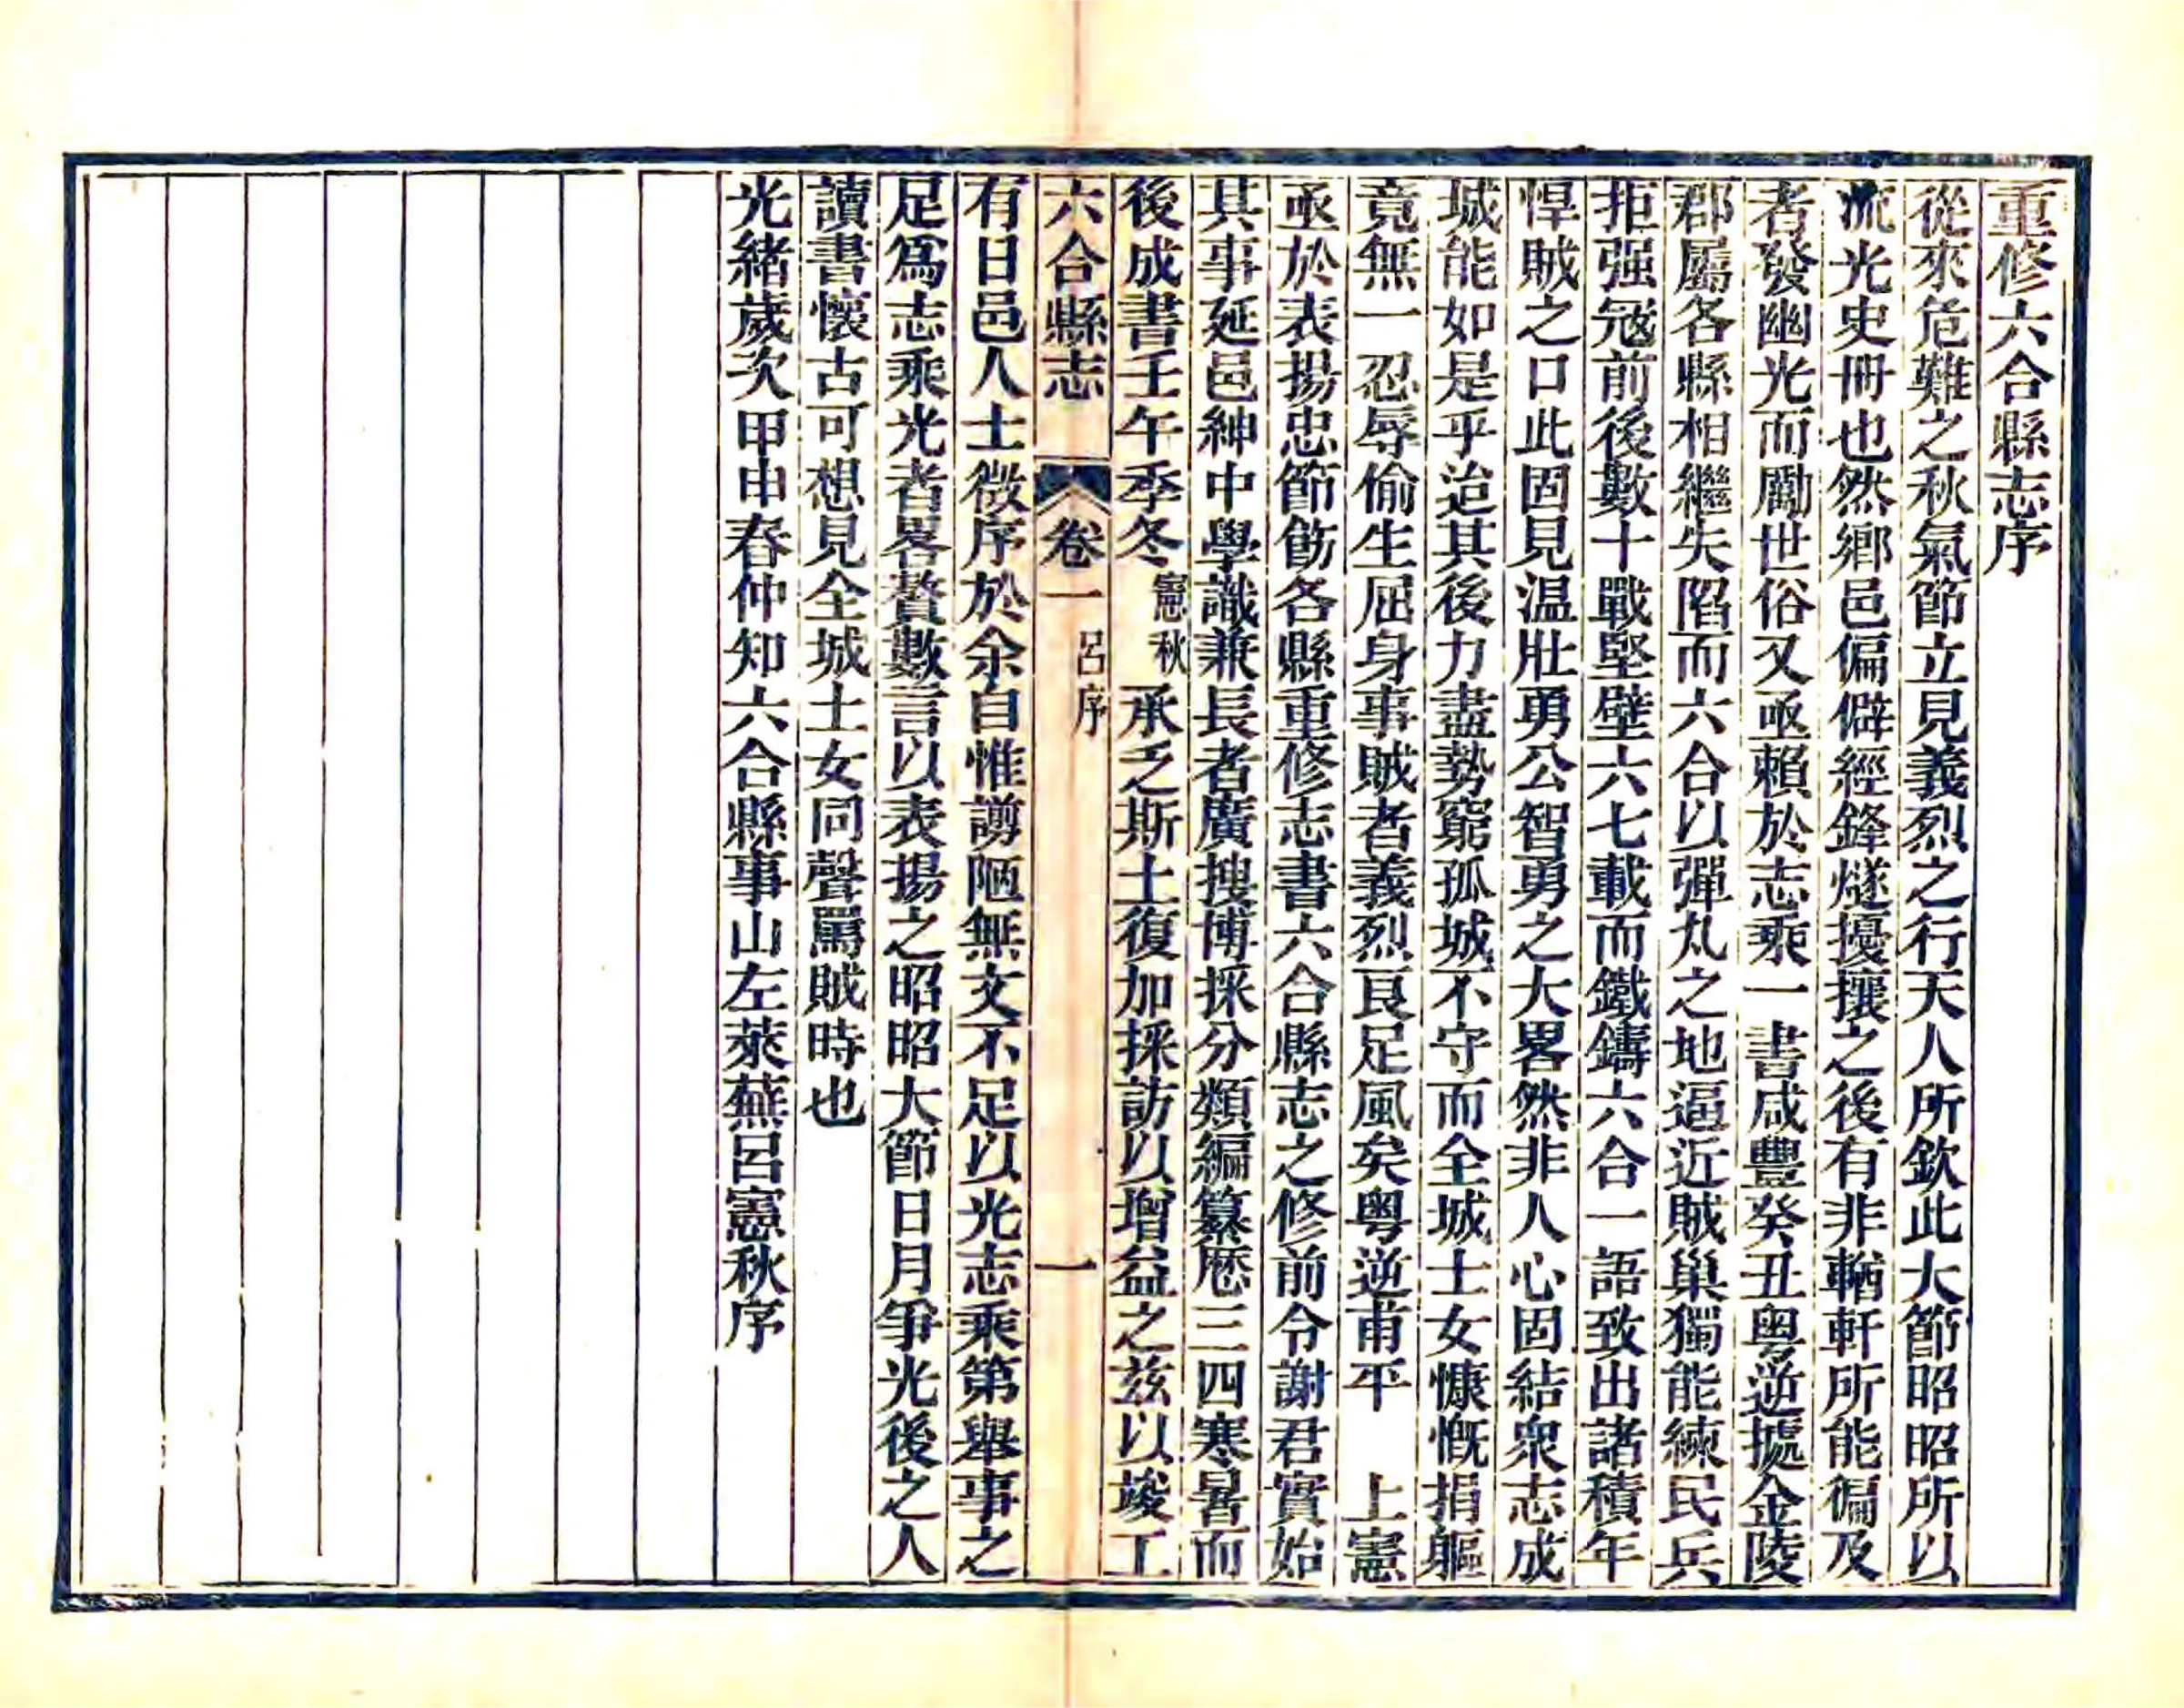 重修六合縣志序
從來危難之秋氣節立見義烈之行天人所欽此大節昭昭所以
流光史冊也然鄉邑偏僻經鋒燧擾攘之後有非輶軒所能徧及
者發幽光而勵世俗又亟賴於志乘一書咸豐癸丑粤逆據金陵
郡屬各縣相繼失陷而六合以彈丸之地逼近賊巢獨能練民兵
拒强寇前後數十戰堅壁六七載而鐵鑄六合一語致出諸積年
悍賊之口此固見温壯勇公智勇之大畧然非人心固結衆志成
城能如是乎迨其後力盡勢窮孤城不守而全城士女慷慨捐軀
竟無一忍辱偷生屈身事賊者義烈良足風矣粤逆甫平　上憲
亟於表揚忠節飭各縣重修志書六合縣志之修前令謝君實始
其事延邑紳中學識兼長者廣搜博採分類編纂厯三四寒暑而
後成書壬午季冬憲秋承乏斯土復加採訪以增益之兹以竣工
六合縣志　卷一　呂序　一
有日邑人士徵序於余自惟謭陋無文不足以光志乘第舉事之
足爲志乘光者畧贅數言以表揚之昭昭大節日月爭光後之人
讀書懷古可想見全城士女同聲罵賊時也
光緒歲次甲申春仲知六合縣事山左萊蕪呂憲秋序